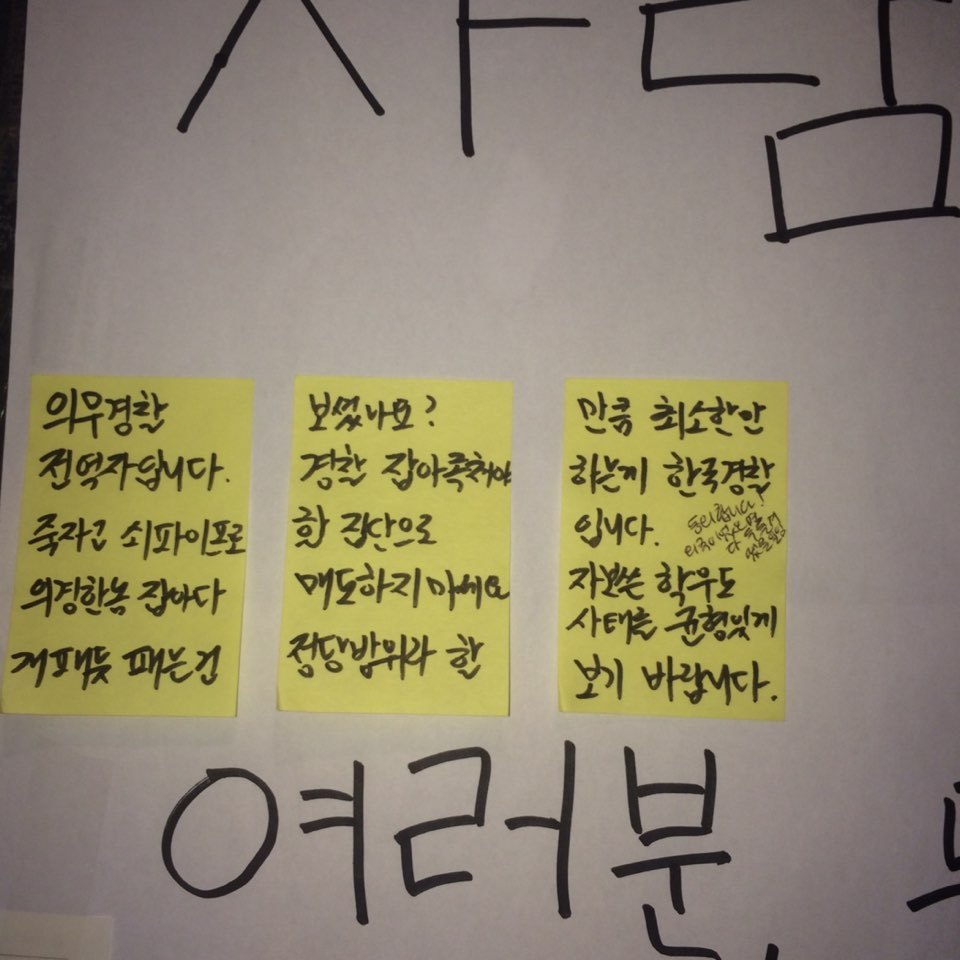 사람
의무경찰
전역자입니다.
죽자고 쇠파이프로
의경한놈 잡아다
개패듯 패는건
보셨나요?
경찰 잡아족쳐야
할 집단으로
매도하지마세요
정당방위라 할
만큼 최소한만
하는게 한국경찰
입니다.
동의합니다!
자보쓴 학우도
사태를 균형있게
보기 바랍니다.
여러분,